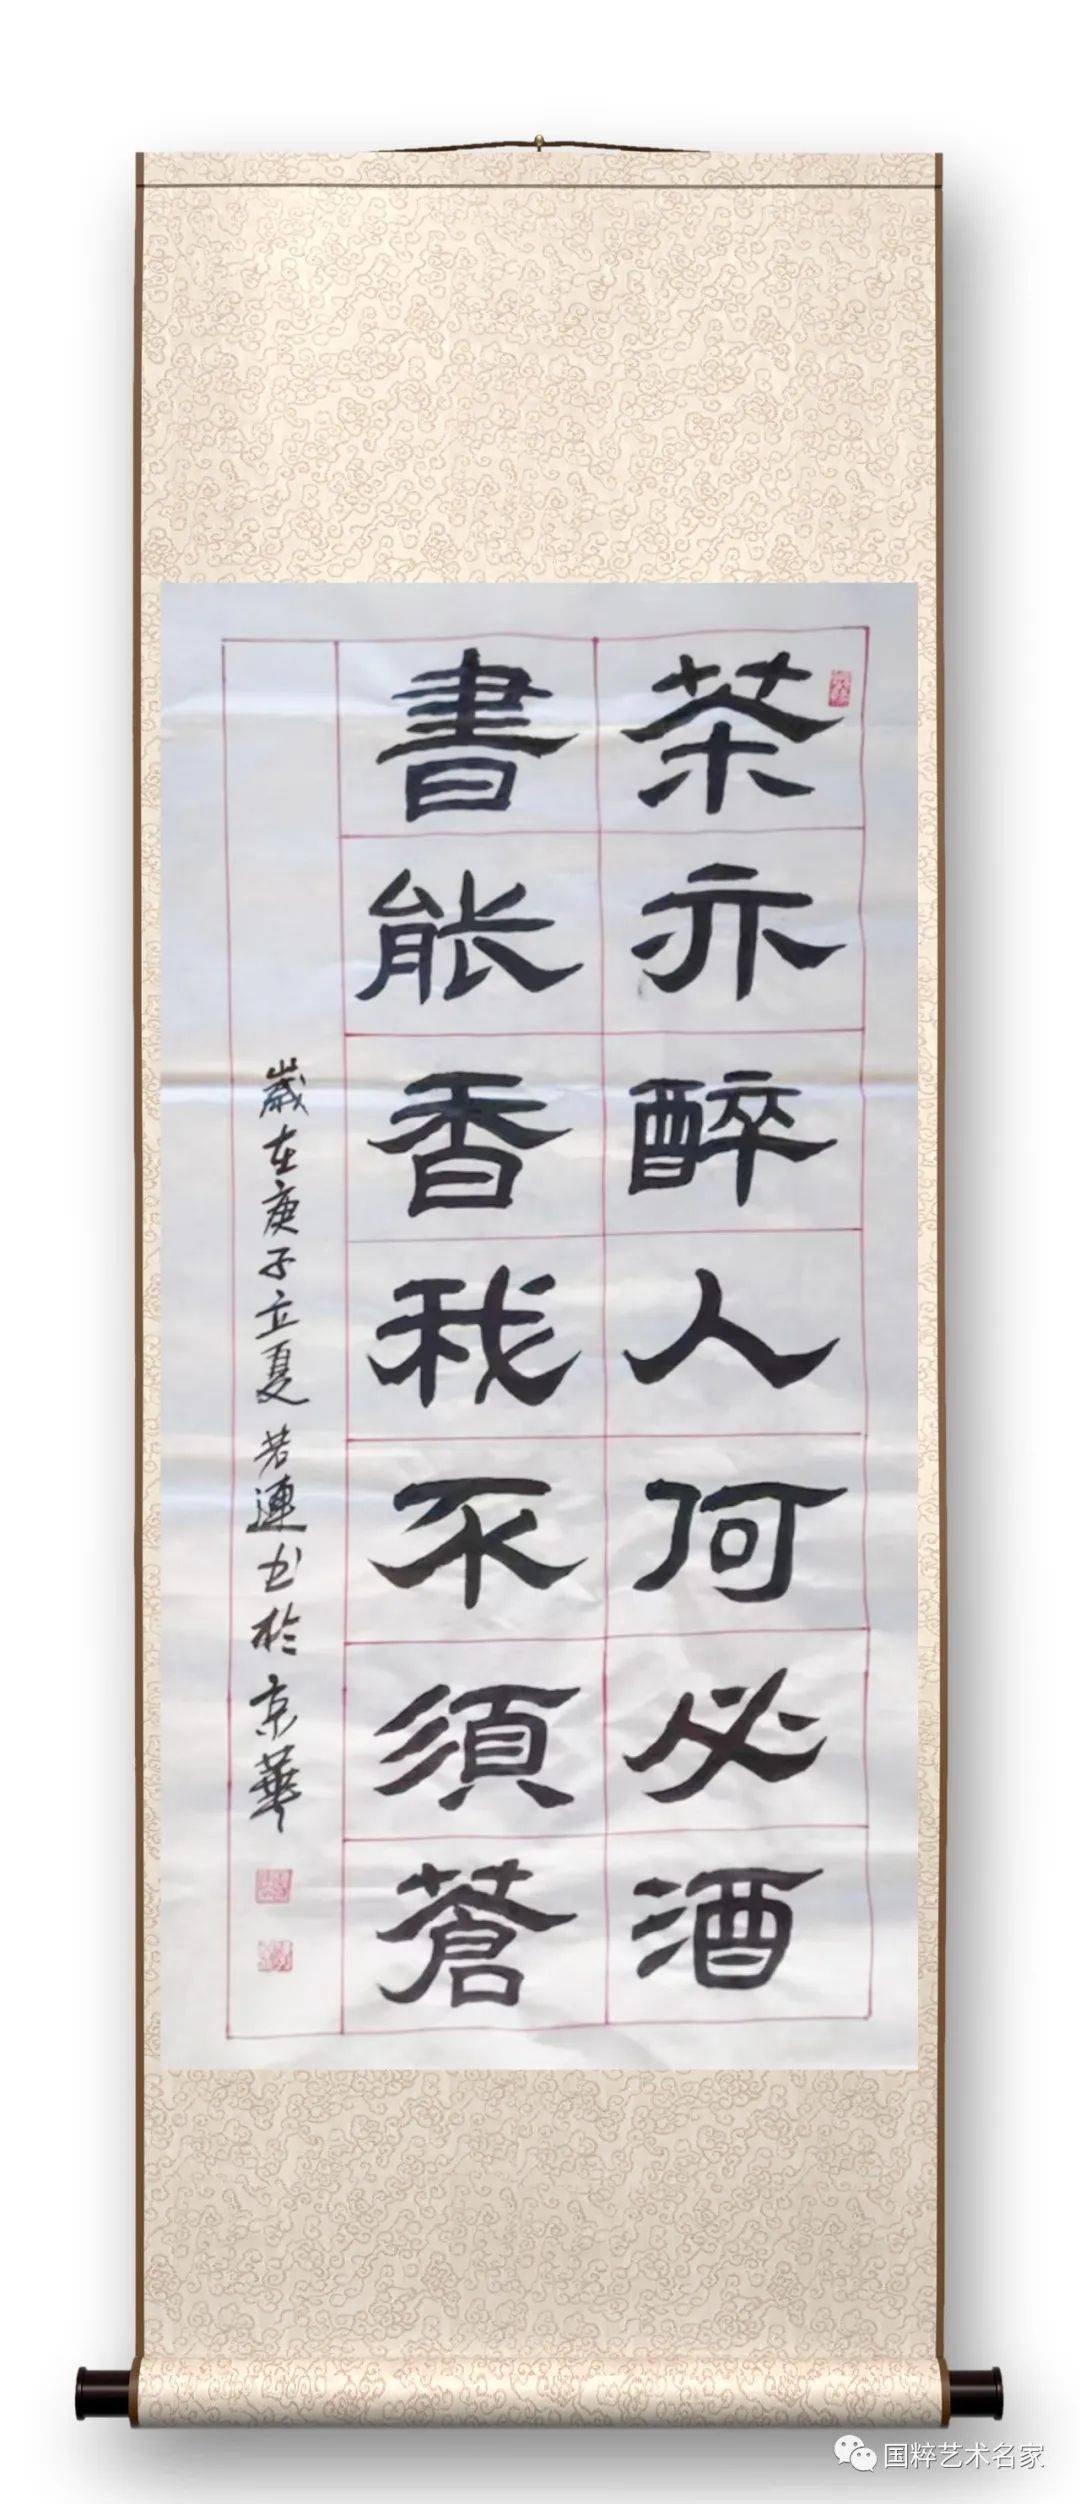 茶亦醉人何必酒
書能香我不須蒼
歲在庚子立夏若連书於京華
国粹艺术名家